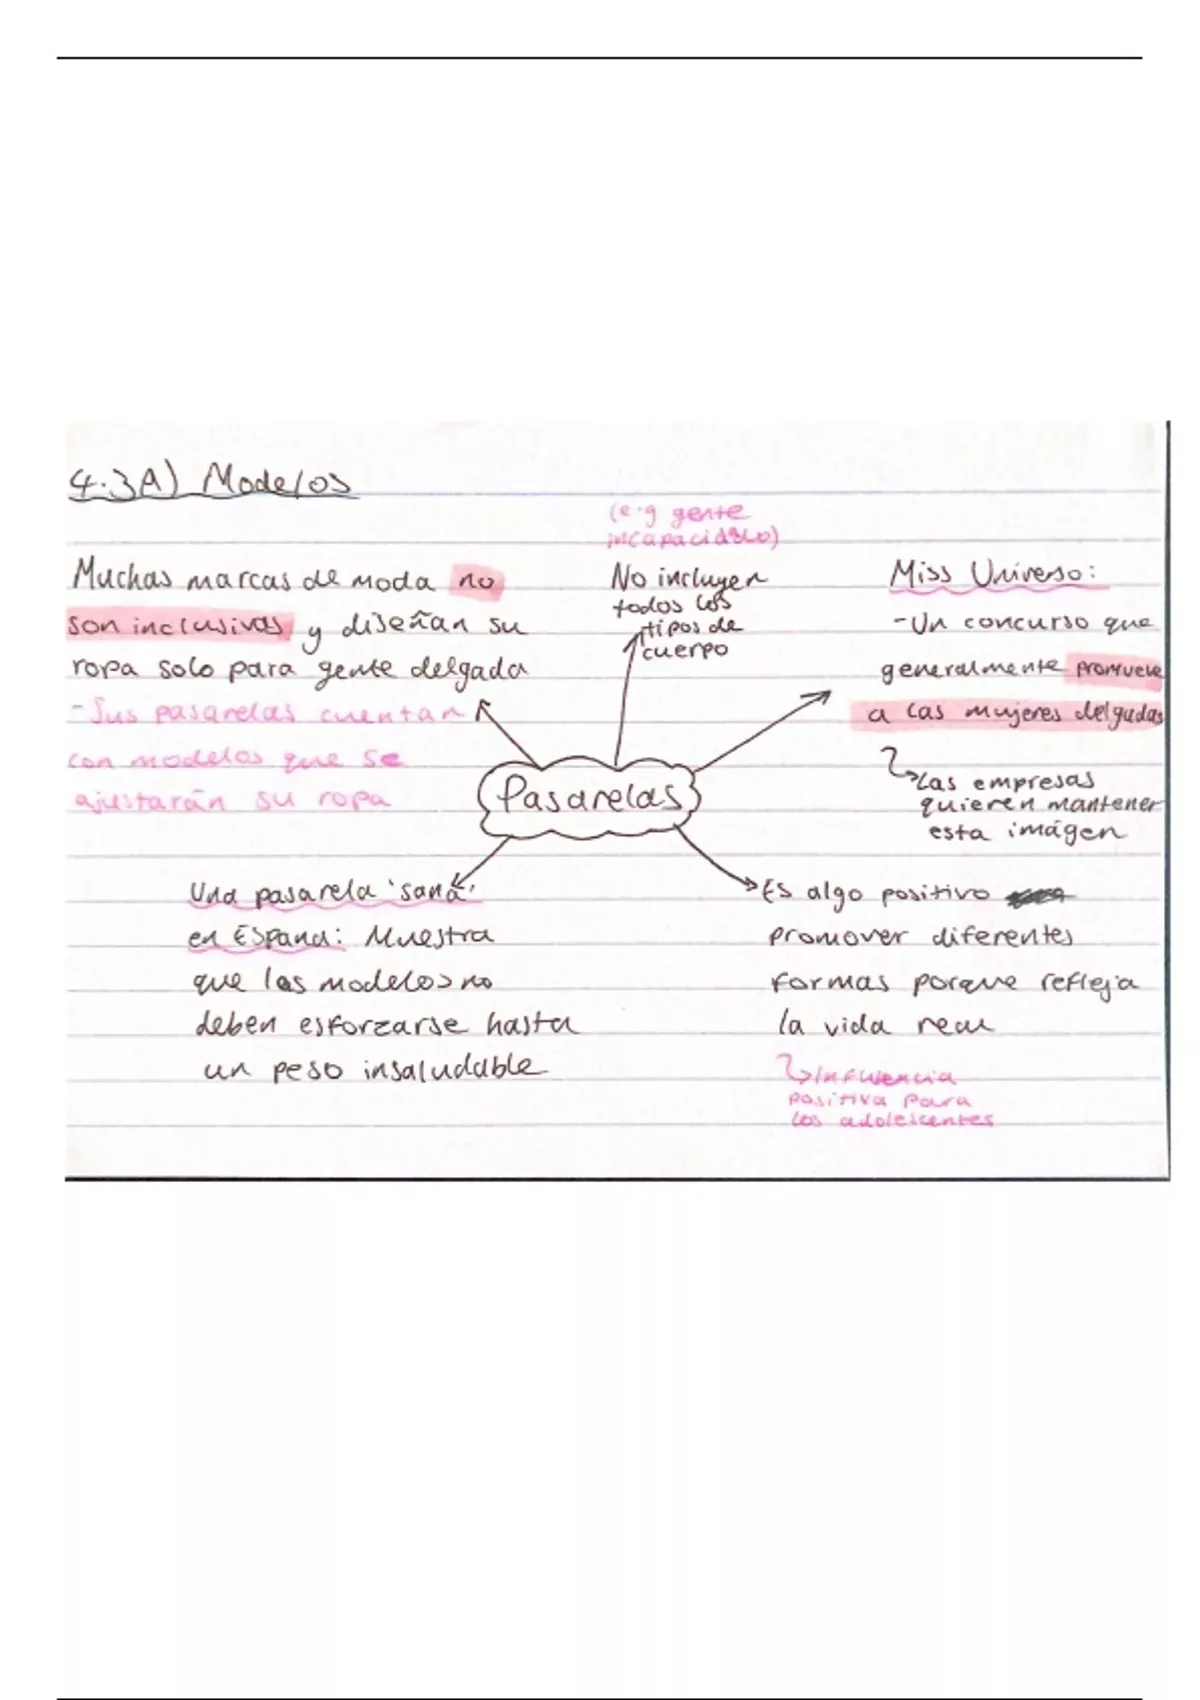 4.3A) Modelos
Muchas marcas de moda no
son inclusivas y diseñan su
ropa solo para gente delgada
- Sus pasarelas cuentan
con modelos que se
ajustarán su ropa
(e.g gente
incapacidado)
No incluyen
todos los
tipos de
cuerpo
Miss Universo:
- Un concurso que
generalmente promueve
a las mujeres delgadas
Las empresas
quieren mantener
esta imágen
Pasarelas
Una pasarela 'sana'
en España: Muestra
que las modelos no
deben esforzarse hasta
un peso insaludable
Es algo positivo
promover diferentes
formas porque refleja
la vida real
Influencia
positiva para
los adolescentes